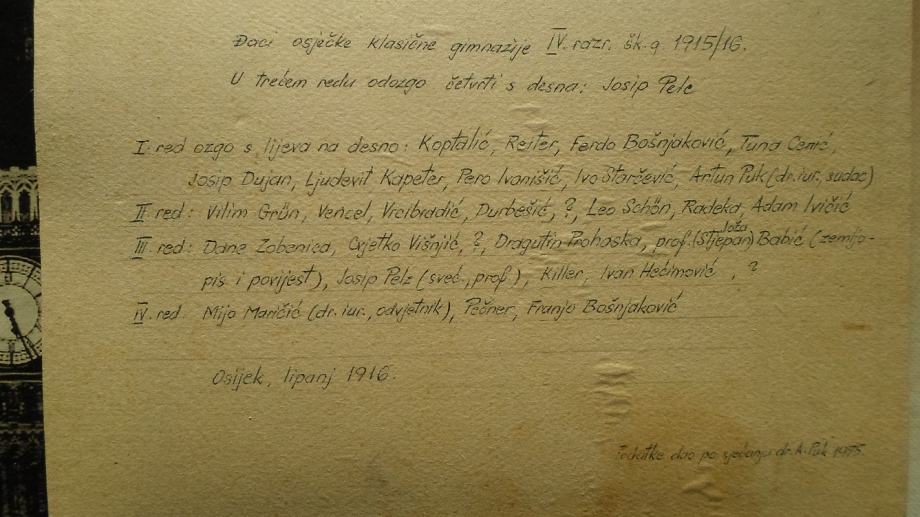 Đaci osječke klasične gimnazije IV. razr. šk. g. 1915/16.
U trećem redu odozgo četvrti s desna: Josip Pelc
I. red ozgo s lijeva na desno: Koptalić, Reiter, Ferdo Bošnjaković, Tuna Cerić,
Josip Dujan, Ljudevit Kapeter, Pero Ivanišić, Ivo Starčević, Artun Puk (dr. iur., sudac)
II red: Vilim Grün, Vencel, Vrcibradić, Durbešić, ?, Leo Schön, Radeka, Adam Ivičić
loža
III. red: Dane Zobenica, Cvjetko Višnjić, ?, Dragutin Prohaska, prof. (Stjepan) Babić (zemljo-
pis i povijest), Josip Pelz (sveć., prof.), Killer, Ivan Hećimović, ?
IV. red: Mijo Maričić (dr. iur., odvjetnik), Pečner, Franjo Bošnjaković
Osijek, lipanj 1916.
Podatke dao po sjećanju dr. A. Puk